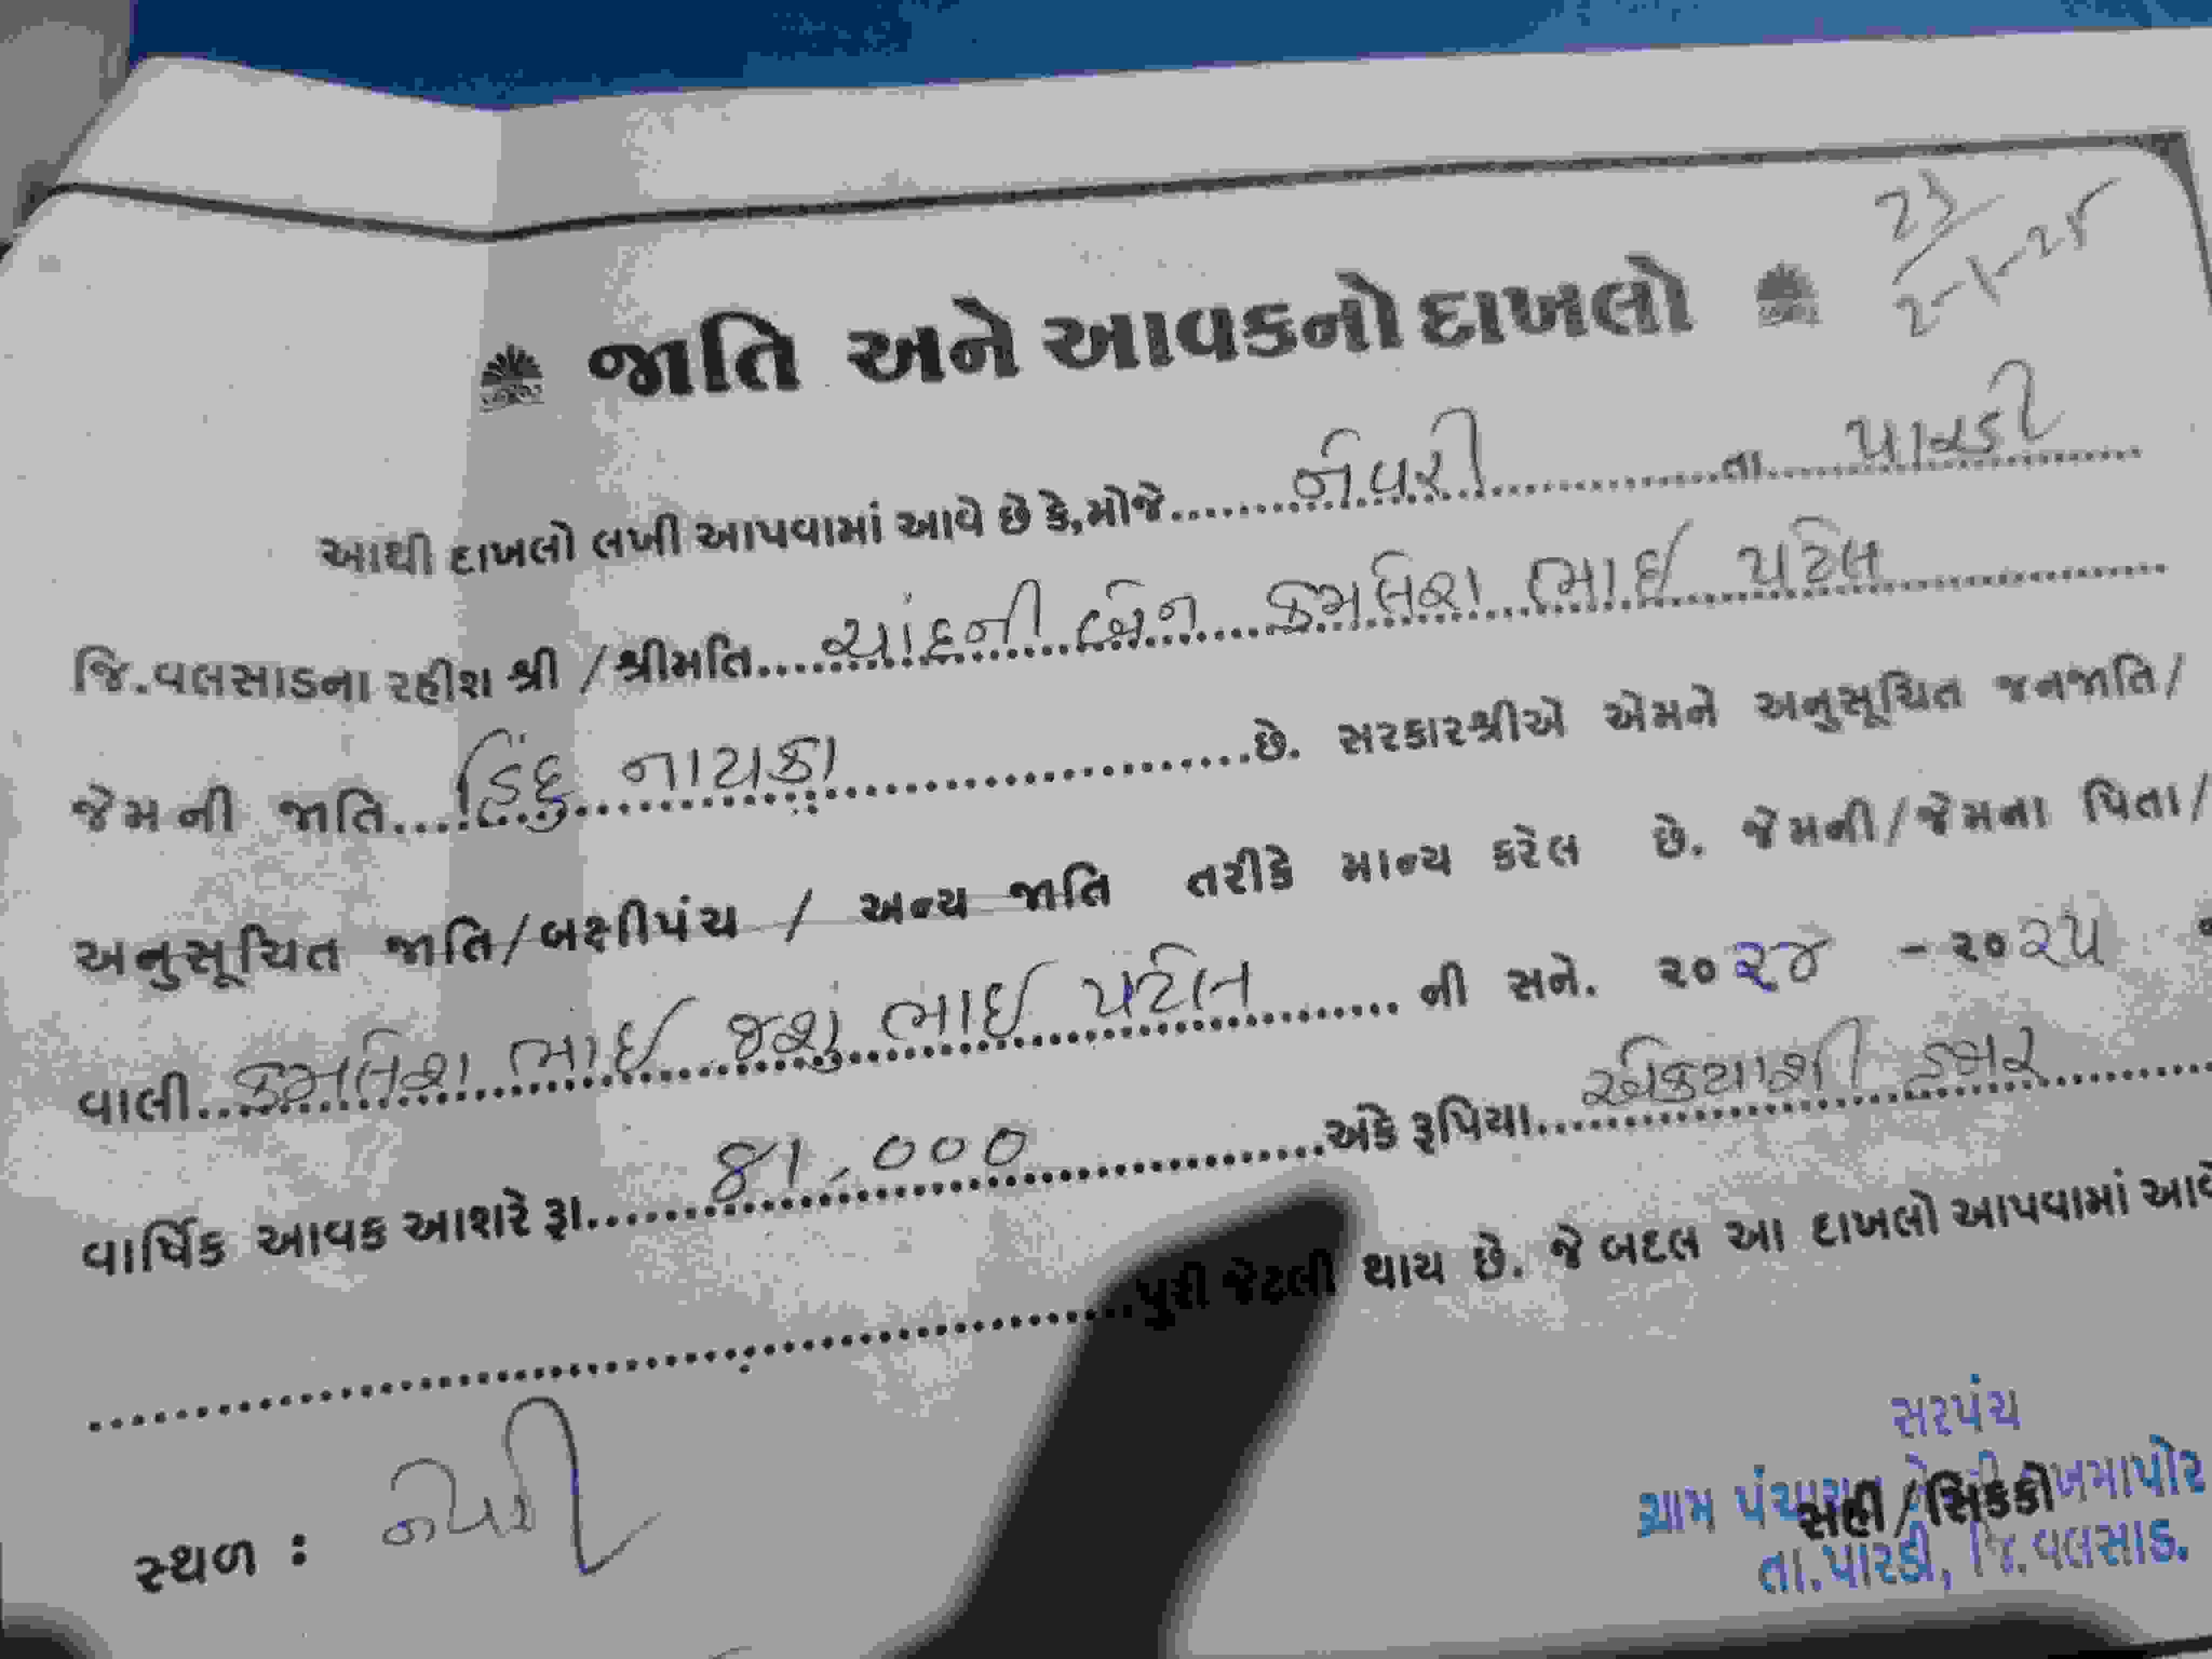 23
2-1-25
જાતિ અને આવકનો દાખલો
આથી દાખલો લખી આપવામાં આવે છે કે,મોજે.....નેવરી.....તા.....પારડી
જિ.વલસાડના રહીશ શ્રી /શ્રીમતિ.....ચાંદની બેન કમલેશ ભાઈ પટેલ
જેમની જાતિ.....હિંદુ નાયકા.....છે. સરકારશ્રીએ એમને અનુસૂચિત જનજાતિ/
અનુસૂચિત જાતિ/બક્ષીપંચ / અન્ય જાતિ તરીકે માન્ય કરેલ છે. જેમની/જેમના પિતા/
વાલી.....કમલેશ ભાઈ જશુ ભાઈ પટેલ.....ની સને. ૨૦૨૪ - ૨૦૨૫
વાર્ષિક આવક આશરે રૂા.....81,000.....અંકે રૂપિયા.....એક્યાશી હજાર
.....પુરી જેટલી થાય છે. જે બદલ આ દાખલો આપવામાં આવે
સરપંચ
ગ્રામ પંચાયત
સહી/સિક્કો
તા.પારડી, જિ.વલસાડ.
સ્થળ :